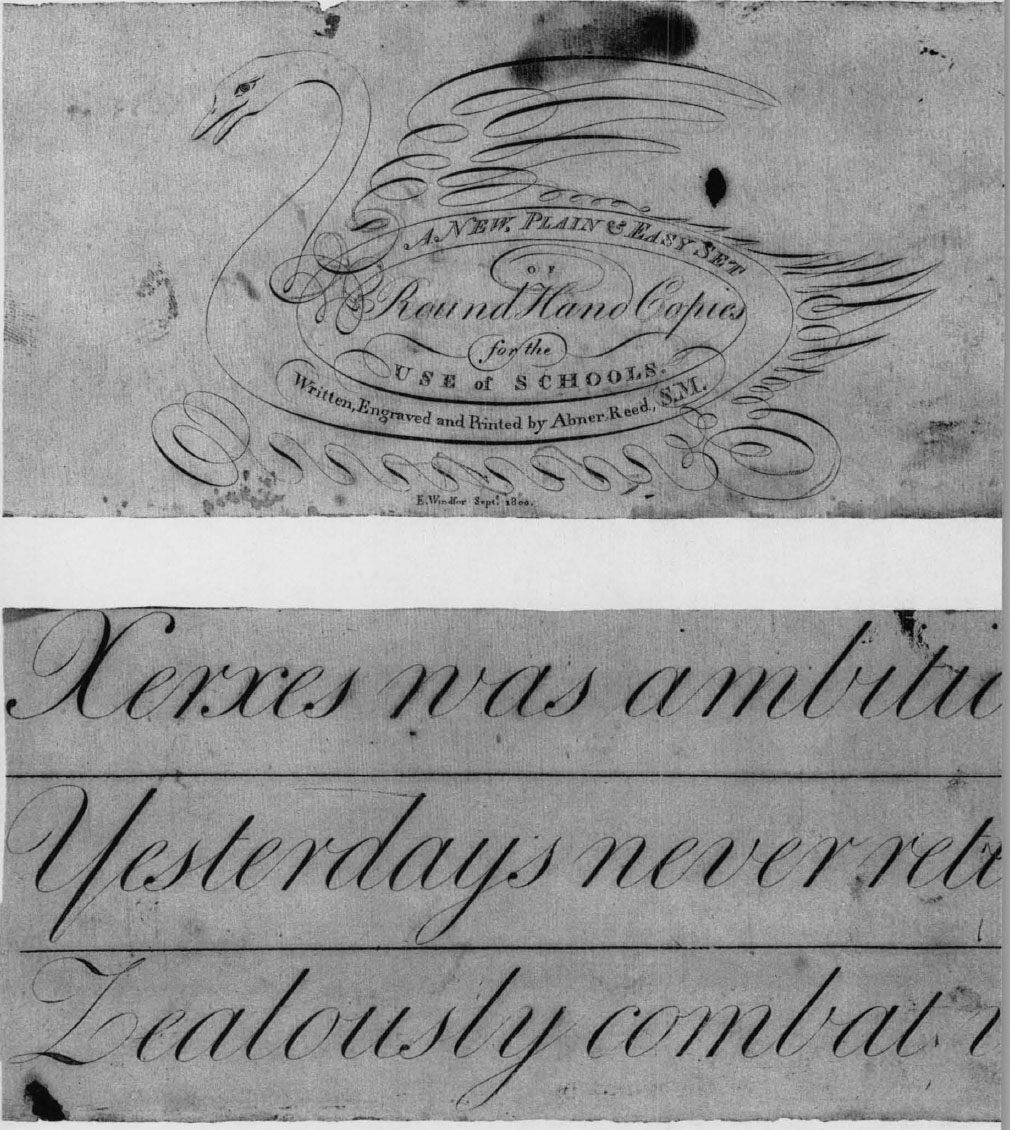 A NEW, PLAIN & EASY SET
OF
Round Hand Copies
for the
USE of SCHOOLS.
Written, Engraved and Printed by Abner Reed, S.M.
E. Windſor Sept. 1800.
Xerxes was ambitio
Yesterdays never retu
Zealously combat